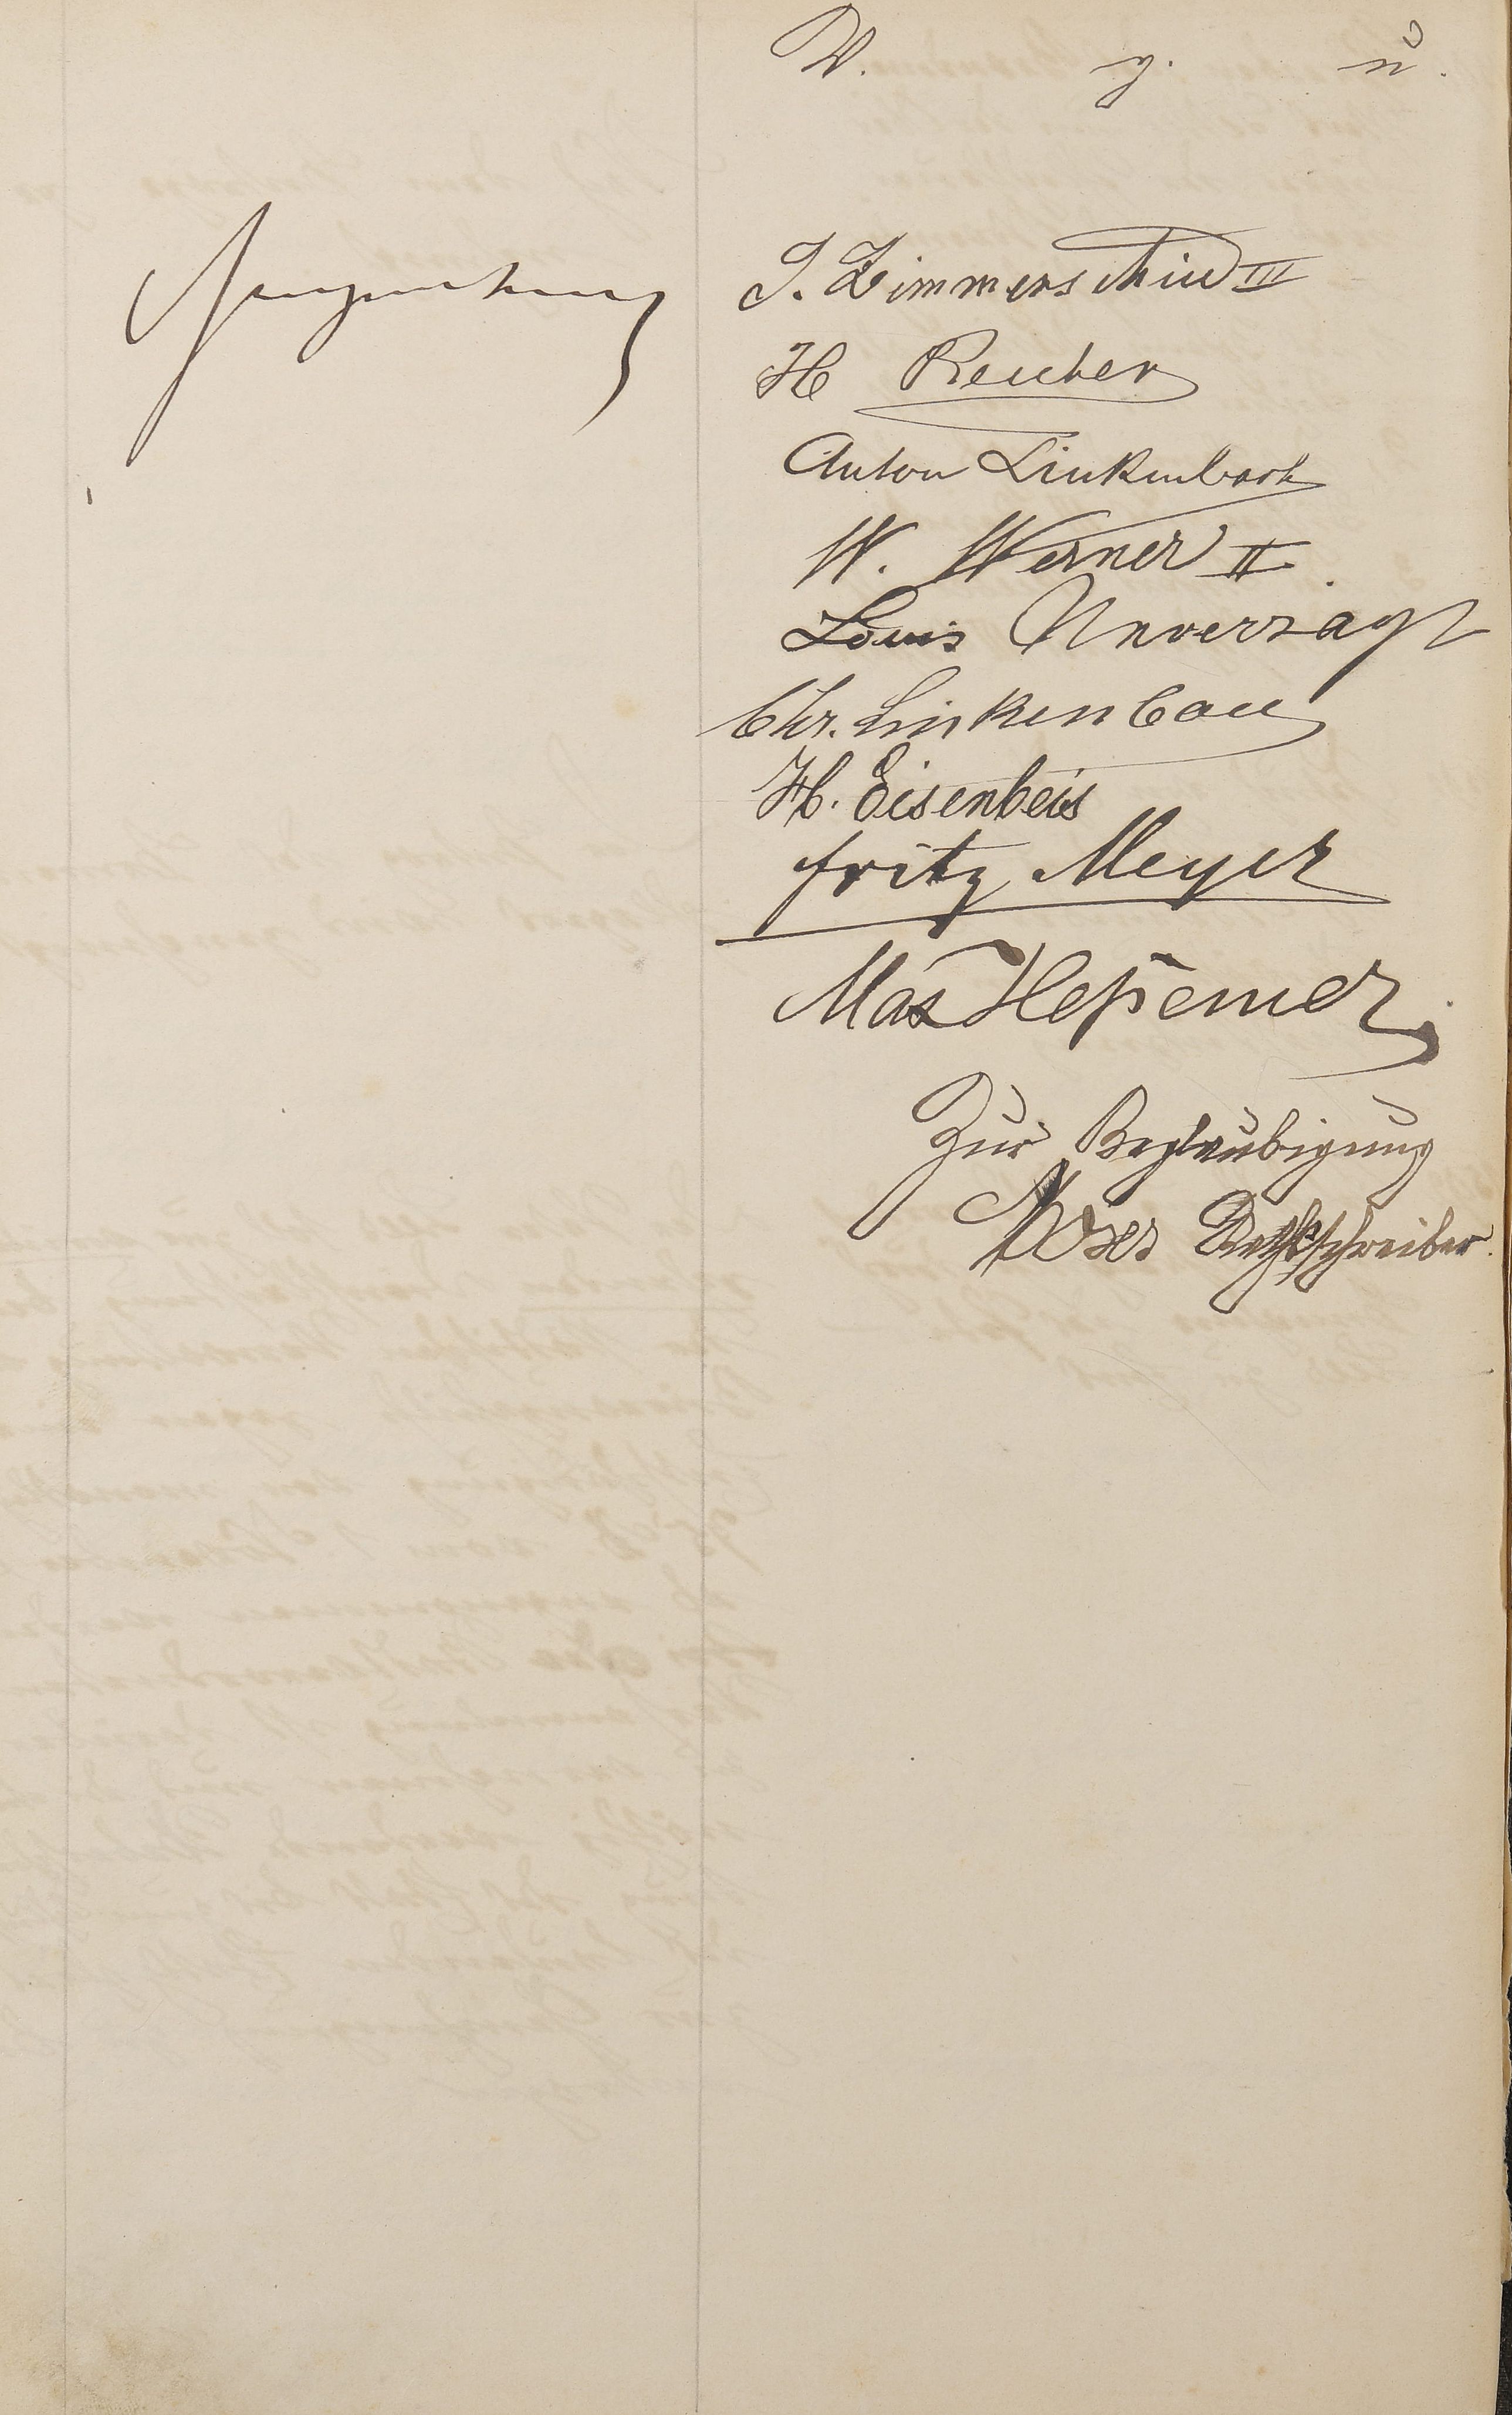 V. g. u.
J. Zimmerschied III
H Reuter
Anton Linkenbach
W. Werner II.
Louis Unverzagt
Chr. Linkenbach
H. Eisenbeis
Fritz Meyer
Max Heßemer
Zur Beglaubigung
schreiber